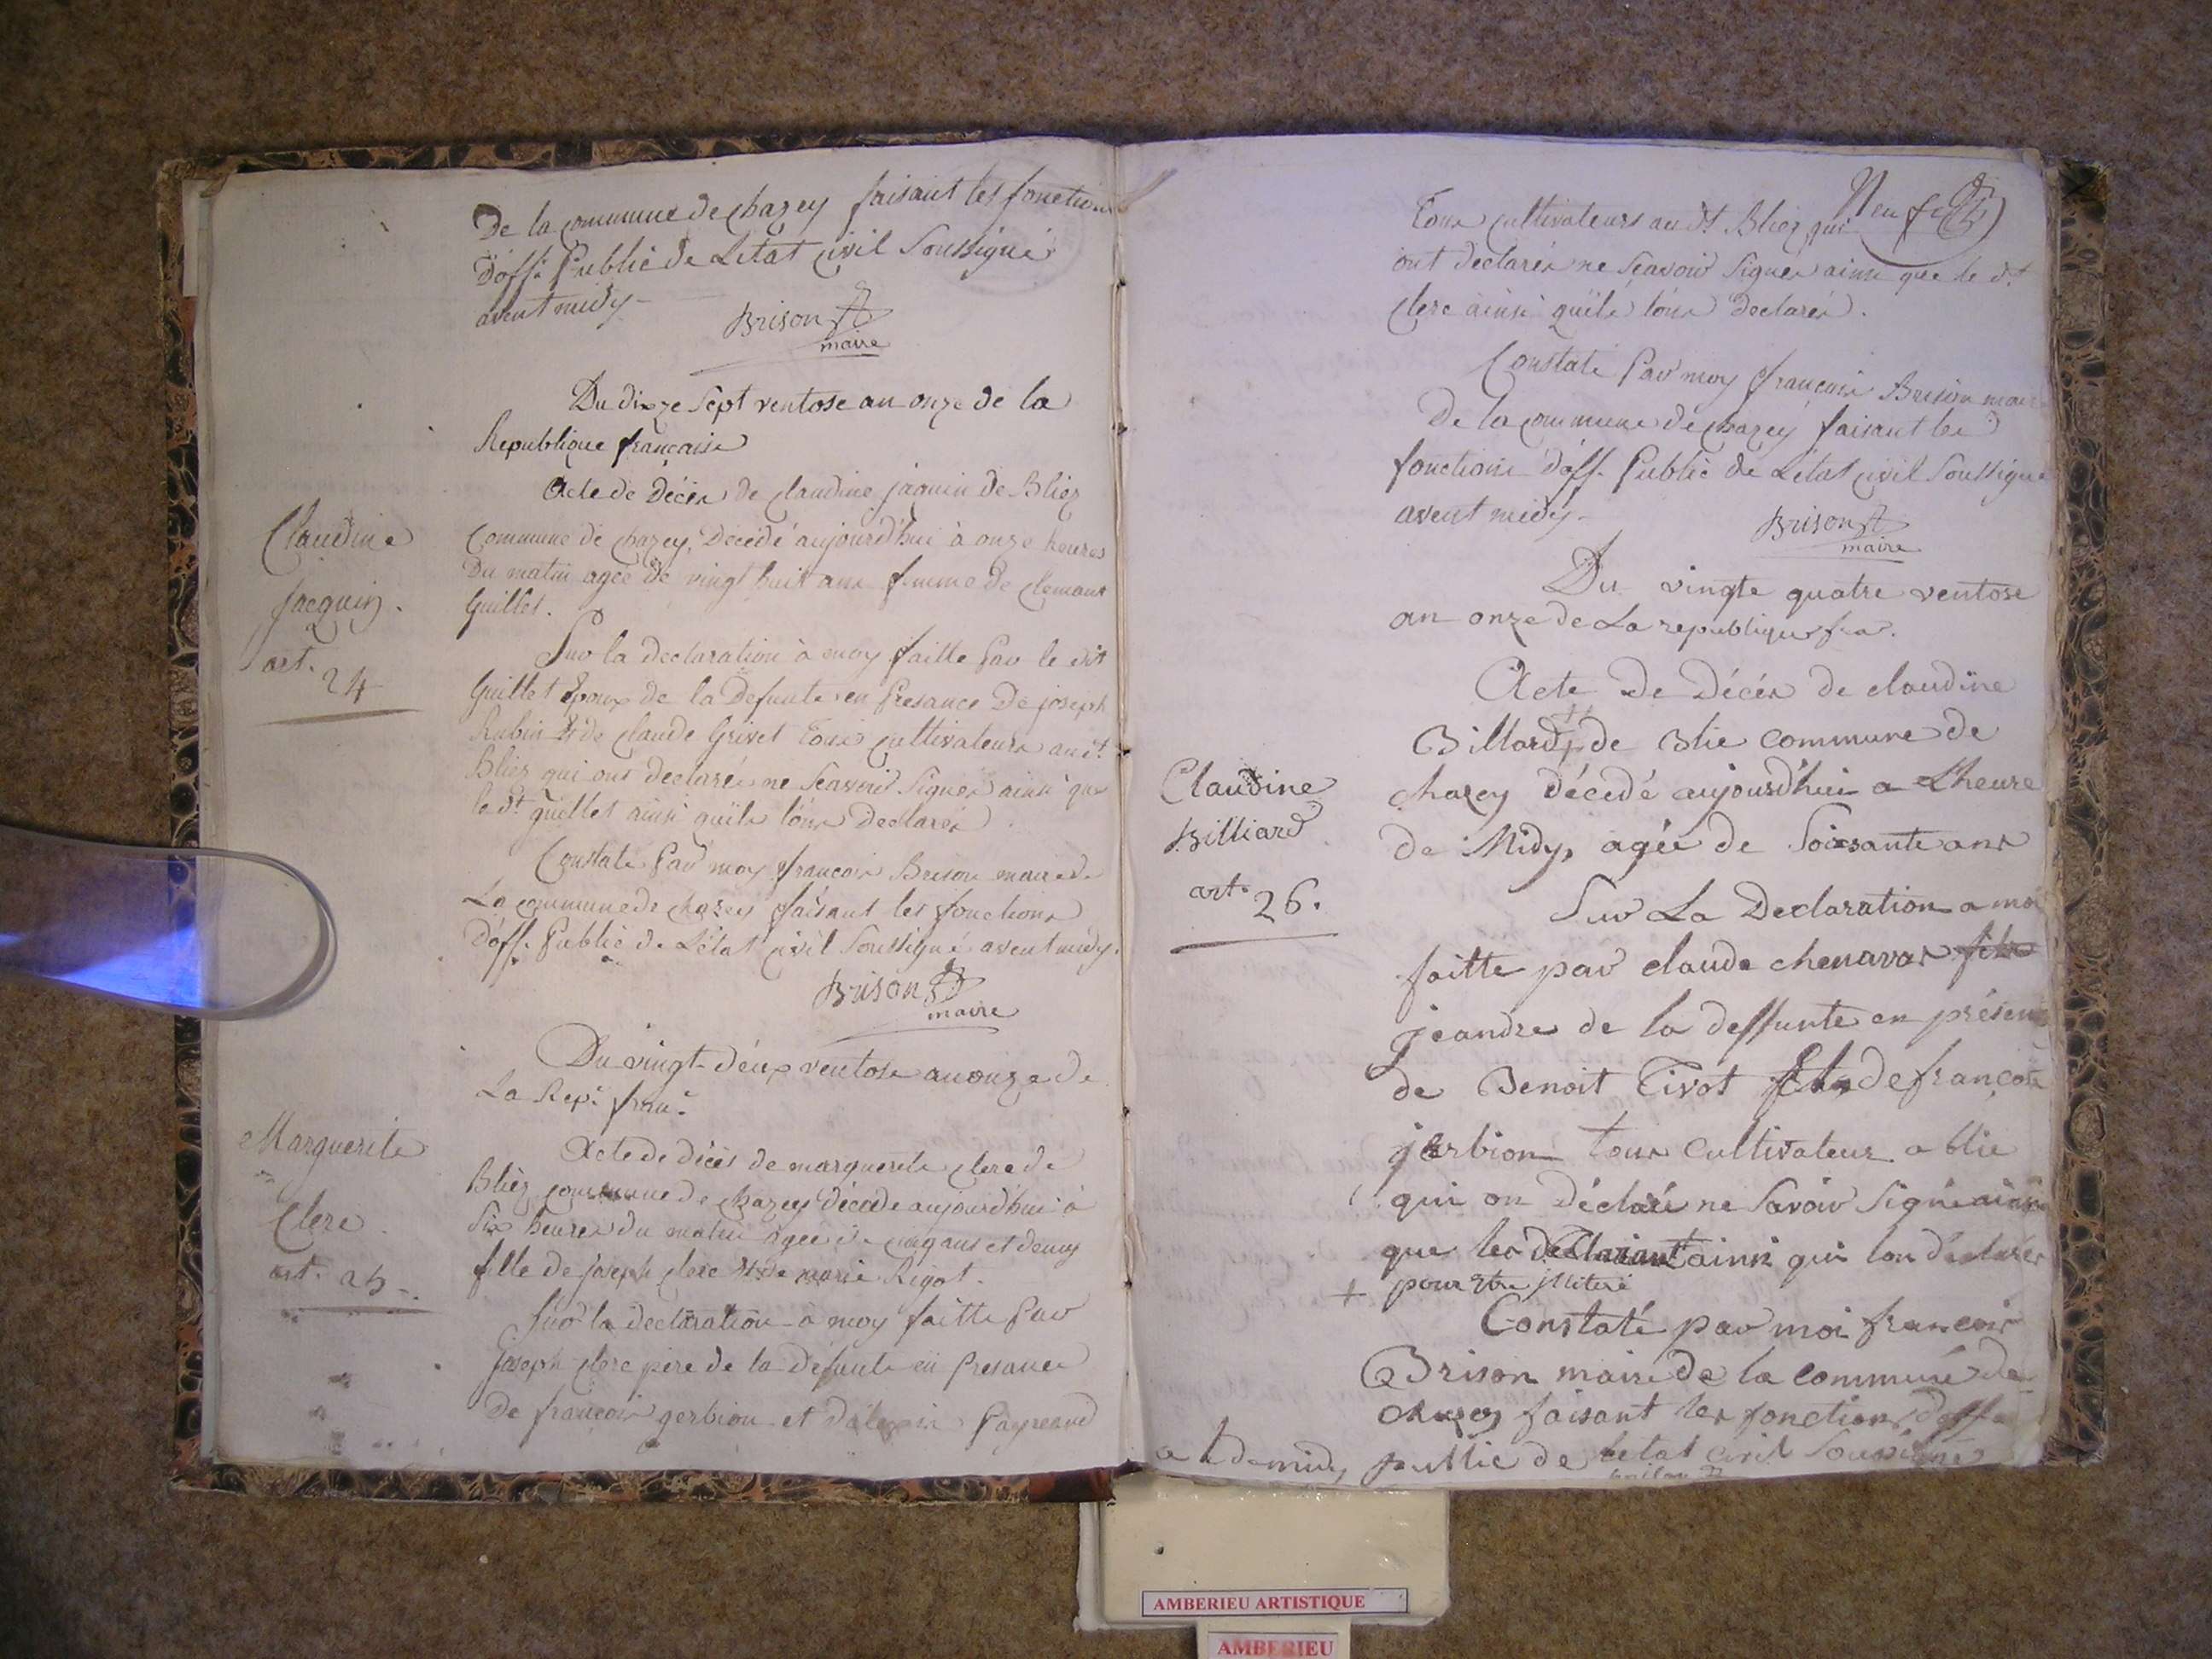 De la commune de chazey faisant les fonctions
d'off. Public de L'état civil Soussigné
avent midy
Brison
maire
Du dixze sept ventose an onze de la
Republique française
Acte de Décès de claudine jaquin de Bliez
Claudine
jacquin.
art. 24
Commune de chazey, Décédé aujourd'hui à onze heures
Du matin agée de vingt huit ans femme de clemant
Guillet.
Sur la declaration à moy faitte Par le dit
Guillet Epoux de la Defunte en Presance De joseph
Rubin et de claude Grivet Tous cultivateurs au dt.
Bliez qui ont declarés ne Scavoir Signer ainsi que
le dt. guillet ainsi quils l'ons Declarés
Constaté Par moy françois Brison maire de
La commune de chazey faisant les fonctions
d'off. Public de L'état civil Soussigné avent midy.
Brison
maire
Du vingt-deux ventose an onze de
La Rep. fran.
Marguerite
Clerc
art. 25
Acte de décès de marguerite clerc de
Bliez commune de chazey décédé aujourd'hui à
Six heures du matin agée de cinq ans et demy
fille de joseph clerc et de marie Rigot.
Sur la declaration à moy faitte Par
joseph clerc père de la Défunte en Presance
de françois gerbion et
Neuf
Tous cultivateurs au dt. Bliez qui
ont declarés ne Scavoir Signés ainsi que le dt.
clerc ainsi quils l'ons declarés.
Constaté Par moy françois Brison maire
De la commune de chazey faisant les
fonctions d'off. Public de L'état civil Soussigné
avent midy
Brison
maire
Du vingte quatre ventose
an onze de La republique fra.
Acte de Décès de claudine
Claudine
Billiard
art. 26.
Billard de Blie commune de
chazey décedé aujourd'hui a Lheure
de Midy, agée de Soixsante ans
Sur La Declaration a moi
faitte par claude chenavas
jeandre de la deffunte en présen
de Benoit Tivot de françois
jerbion tous cultivateur a blie
qui on déclaré ne Savoir Signé ainsi
que les declarant ainsi qui lon declarer
+ pour etre illiteré
Constaté par moi francois
Brison maire de la commune de
chazey faisant les fonctions d'off
public de letat civil Soussigné